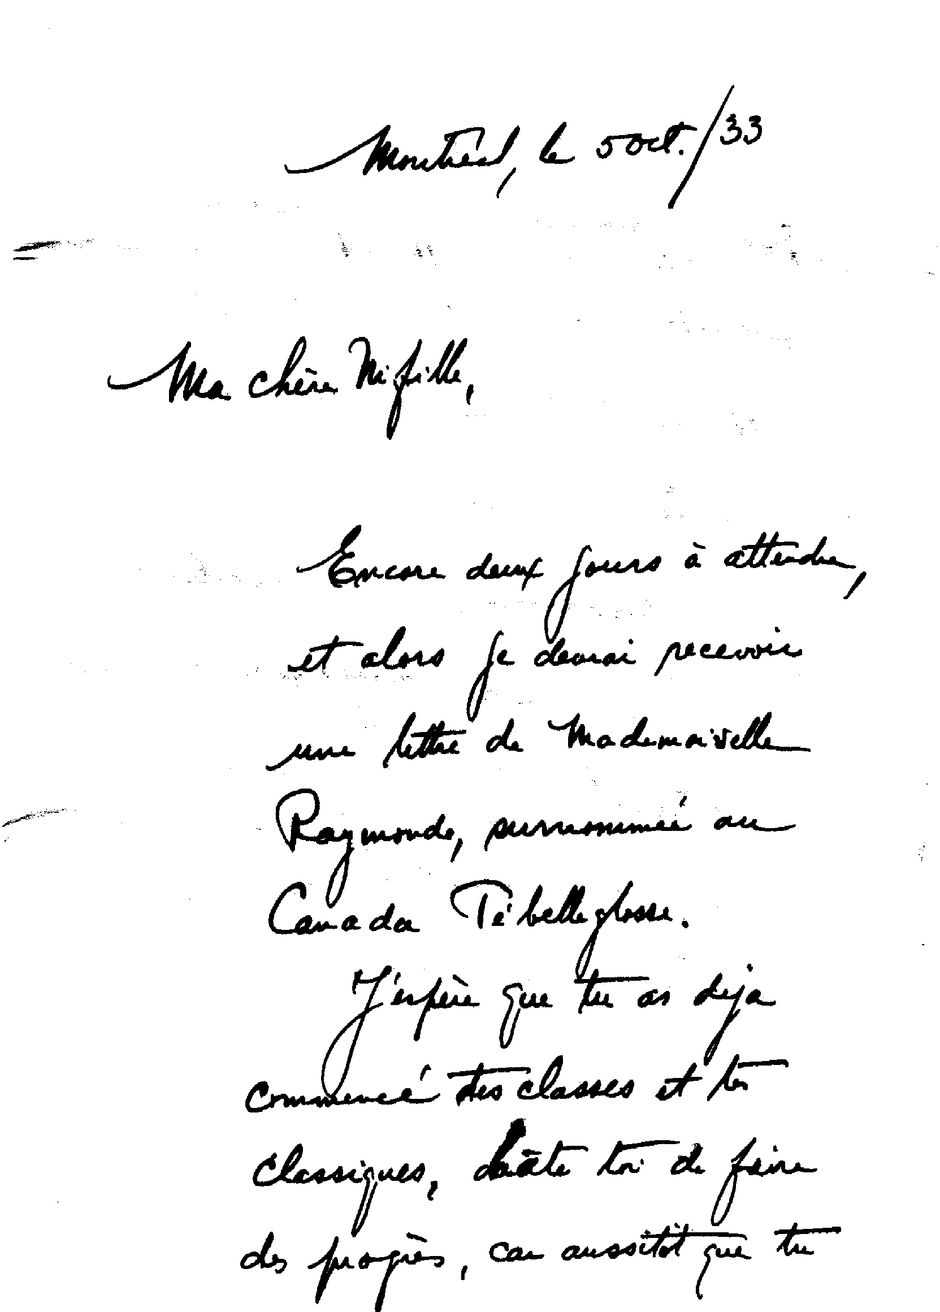 Montréal, le 5 Oct./33
Ma chère Nifille,
Encore deux jours à attendre,
et alors je devrai recevoir
une lettre de Mademoiselle
Raymonde, surnommée au
Canada Ti'belleglosse.
J'espère que tu as deja
commencé tes classes et tes
classiques, hâte toi de faire
des progrès, car aussitôt que tu